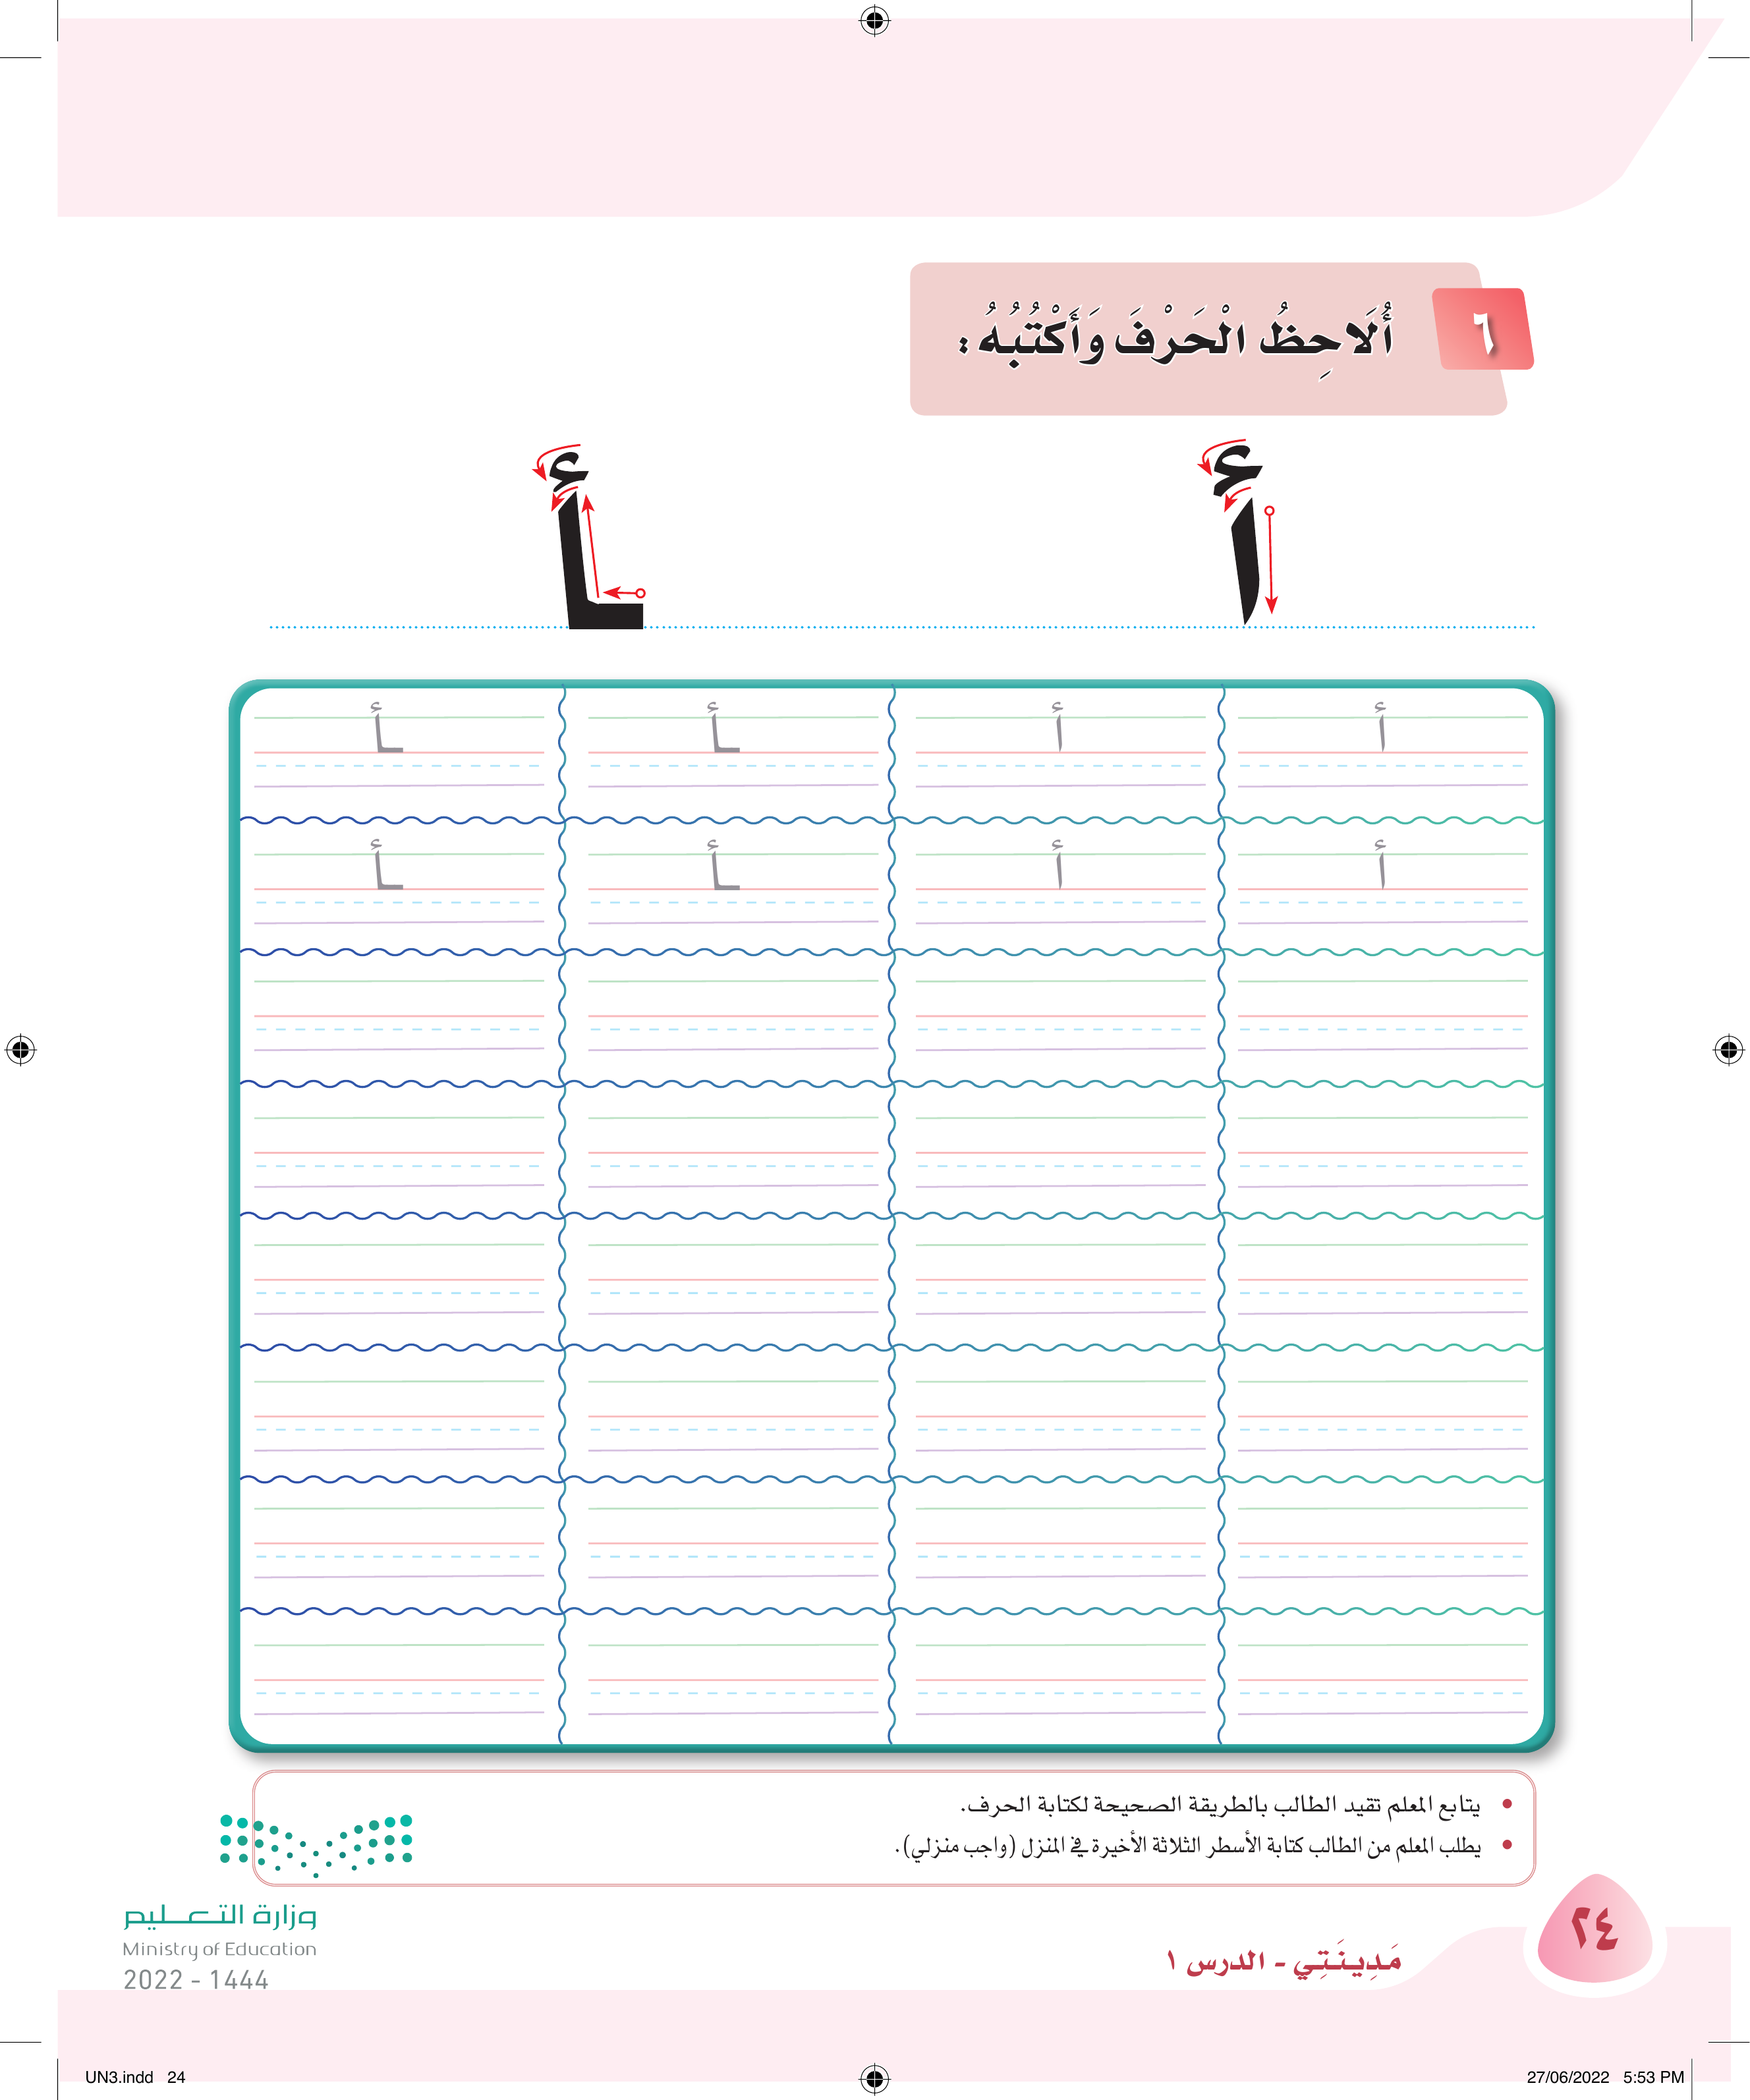 ٦
أُلَاحِظُ الْحَرْفَ وَأَكْتُبُهُ :
أ ـأ
أ أ ـأ ـأ
أ أ ـأ ـأ
• يتابع المعلم تقيد الطالب بالطريقة الصحيحة لكتابة الحرف.
• يطلب المعلم من الطالب كتابة الأسطر الثلاثة الأخيرة في المنزل (واجب منزلي).
وزارة التعليم
Ministry of Education
2022 - 1444
٢٤
مَدِينَتِي - الدرس ١
UN3.indd 24
27/06/2022 5:53 PM